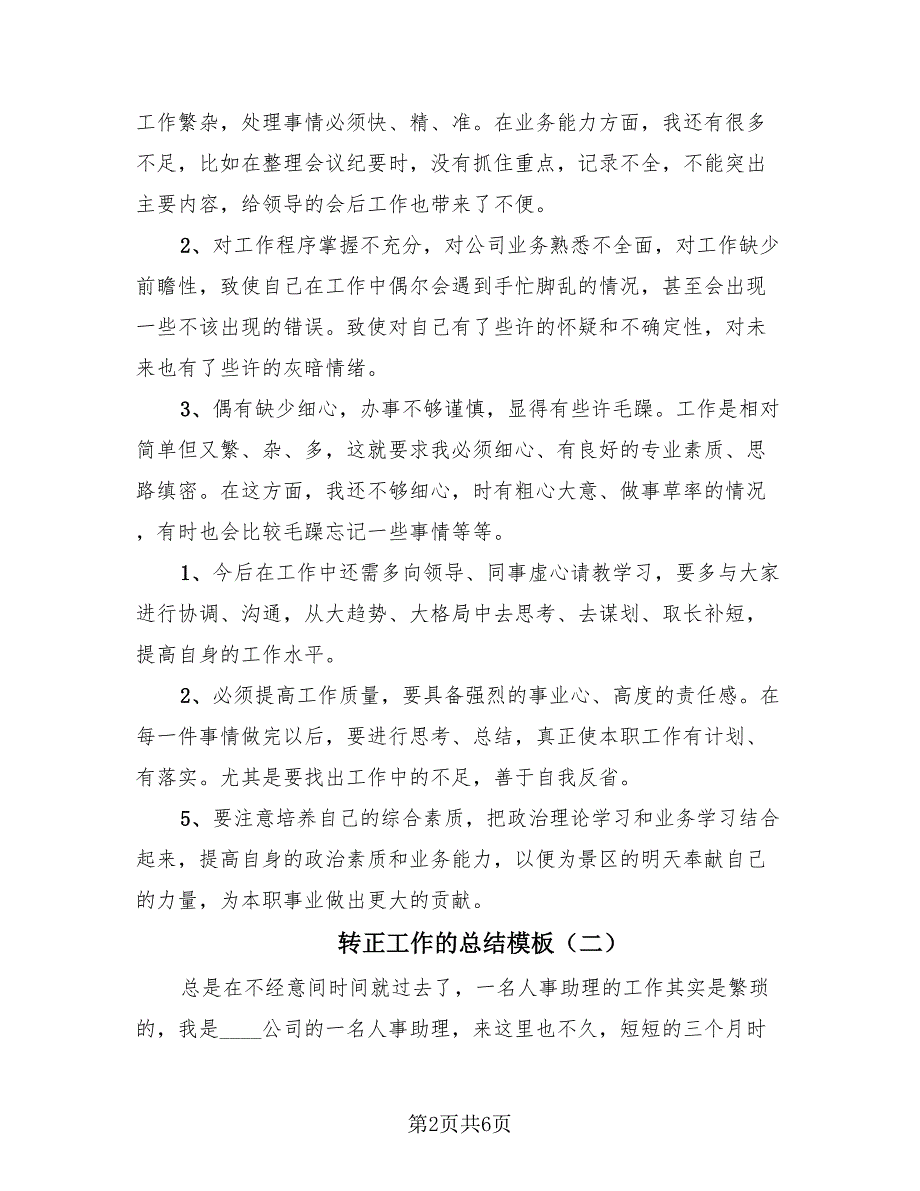 工作繁杂，处理事情必须快、精、准。在业务能力方面，我还有很多
不足，比如在整理会议纪要时，没有抓住重点，记录不全，不能突出
主要内容，给领导的会后工作也带来了不便。
2、对工作程序掌握不充分，对公司业务熟悉不全面，对工作缺少
前瞻性，致使自己在工作中偶尔会遇到手忙脚乱的情况，甚至会出现
一些不该出现的错误。致使对自己有了些许的怀疑和不确定性，对未
来也有了些许的灰暗情绪。
3、偶有缺少细心，办事不够谨慎，显得有些许毛躁。工作是相对
简单但又繁、杂、多，这就要求我必须细心、有良好的专业素质、思
路缜密。在这方面，我还不够细心，时有粗心大意、做事草率的情况
，有时也会比较毛躁忘记一些事情等等。
1、今后在工作中还需多向领导、同事虚心请教学习，要多与大家
进行协调、沟通，从大趋势、大格局中去思考、去谋划、取长补短，
提高自身的工作水平。
2、必须提高工作质量，要具备强烈的事业心、高度的责任感。在
每一件事情做完以后，要进行思考、总结，真正使本职工作有计划、
有落实。尤其是要找出工作中的不足，善于自我反省。
5、要注意培养自己的综合素质，把政治理论学习和业务学习结合
起来，提高自身的政治素质和业务能力，以便为景区的明天奉献自己
的力量，为本职事业做出更大的贡献。
转正工作的总结模板（二）
总是在不经意间时间就过去了，一名人事助理的工作其实是繁琐
的，我是____公司的一名人事助理，来这里也不久，短短的三个月时
第2页共6页